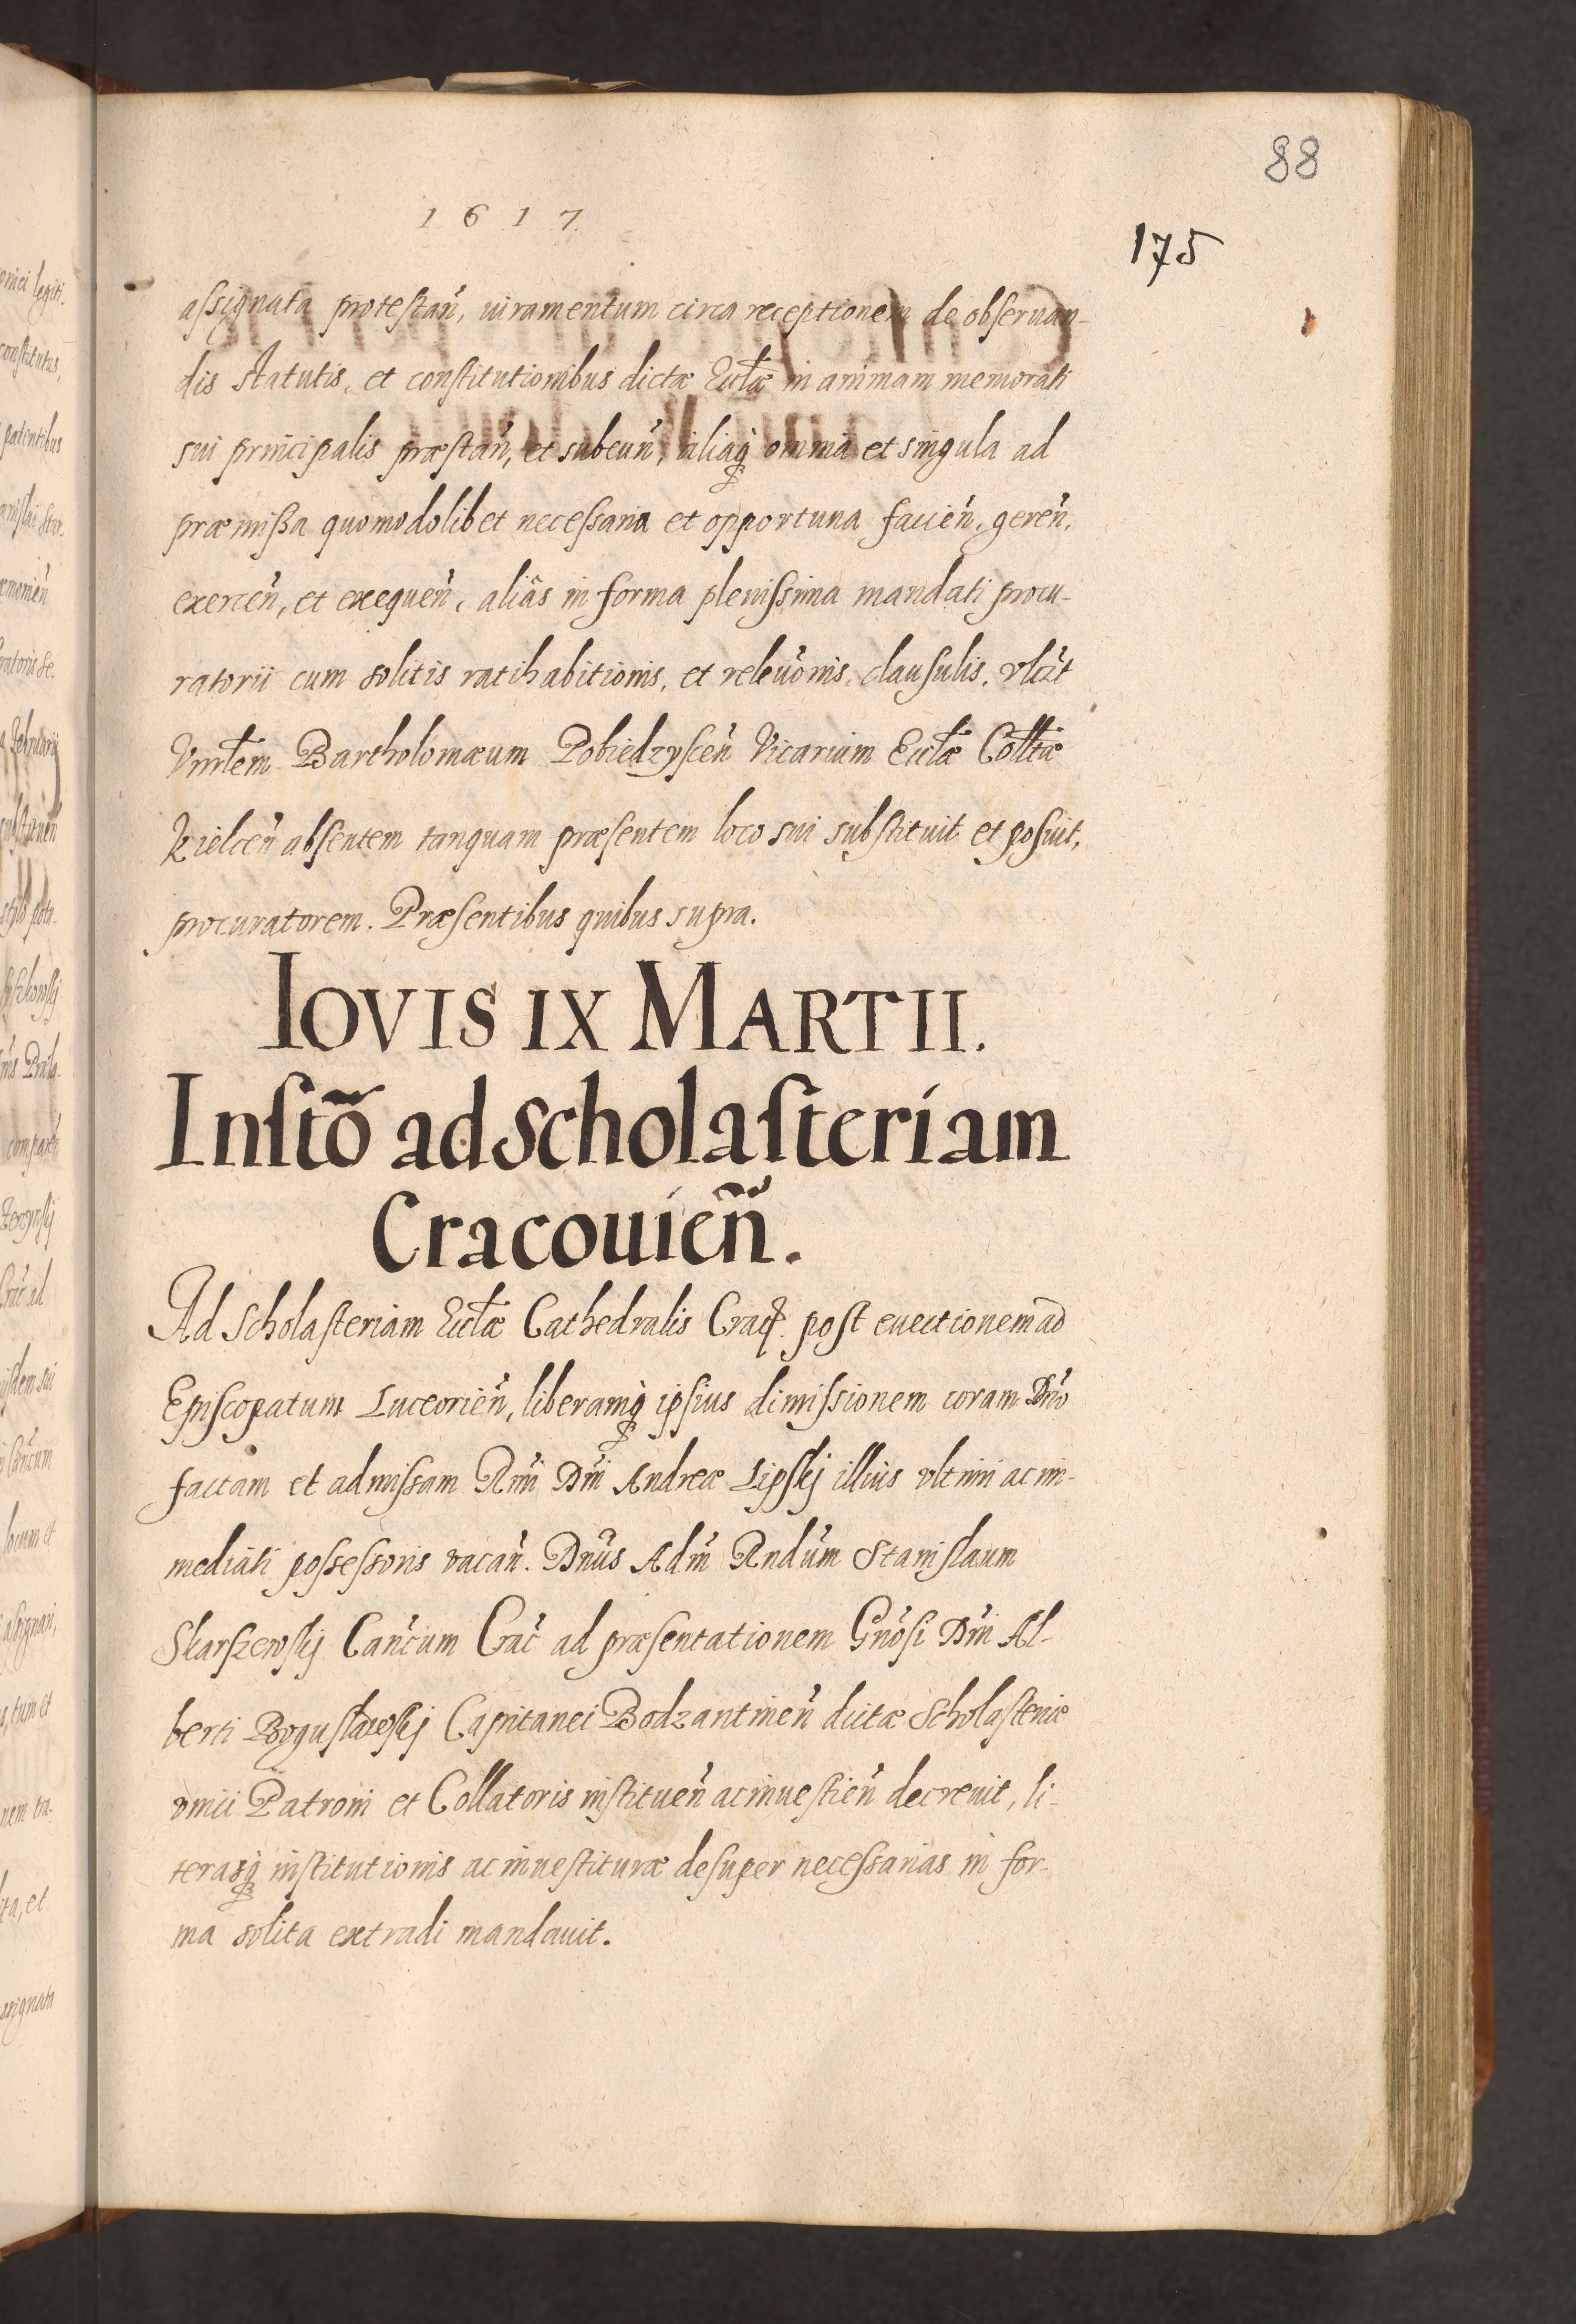 88
1617
175
aſsignata proteſtan̄, iuramentum circa receptionem de obſeruan-
dis statutis, et conſtitutionibus dictæ Eccl̄æ in animam memorati
sui principalis præſtan̄, et subeun̄, aliaq; omnia et singula ad
præmiſsa quomodolibet neceſsaria et opportuna facien̄, geren̄,
exercen̄, et exequen̄, aliâs in forma pleniſsima mandati procu-
ratorii cum solitis ratihabitionis, et relev̄onis, clauſulis. vlt̄it
Vnr̄lem Bartholomæum Pobiedzyſcen̄ Vicarium Eccl̄æ Coll̄tæ
Kielcen̄ abſentem tanquam præſentem loco sui subſtituit et poſuit,
procuratorem. Præſentibus quibus supra.
IOVIS IX MARTII.
Inſtõ ad Scholaſteriam
Cracouien̄.
Ad Scholaſteriam Eccl̄æ Cathedralis Crac̄. poſt euectionem ad
Epiſcopatum Luceorien̄, liberamq; ipſius dimiſsionem coram Dn̄o
factam et admiſsam Rm̄i Dn̄i Andreæ Lipſkij illius vltimi ac im-
mediati poſseſsoris vacan̄. Dn̄us Adm̄ Rndūm Staniſlaum
Skarſzewſkij Can̄cum Crac̄ ad præſentationem Gn̄oſi Dn̄i Al-
berti Boguſławſkij Capitanei Bodzantinen̄ dictæ Scholaſteriæ
vnici Patroni et Collatoris inſtituen̄ ac inueſtien̄ decreuit, li-
terasq; inſtitutionis ac inueſtituræ deſuper neceſsarias in for-
ma solita extradi mandauit.